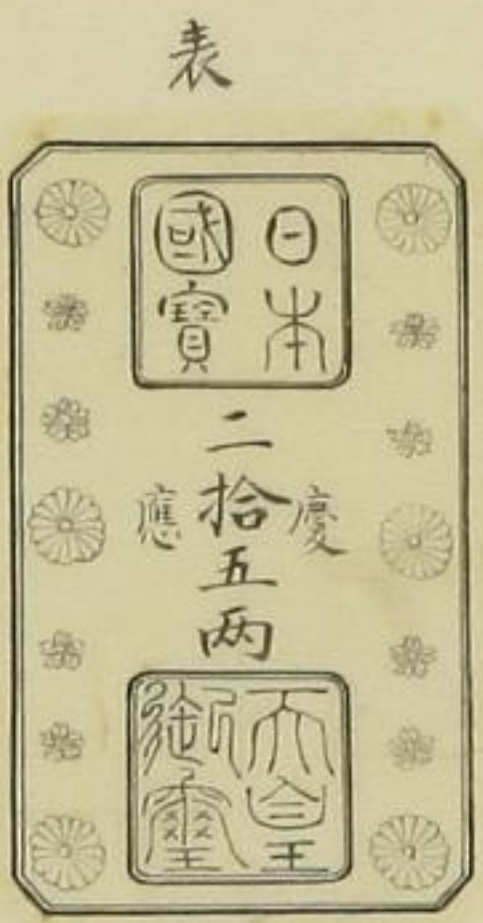 表
日本
國寶
二拾五両
慶應
天皇
御璽